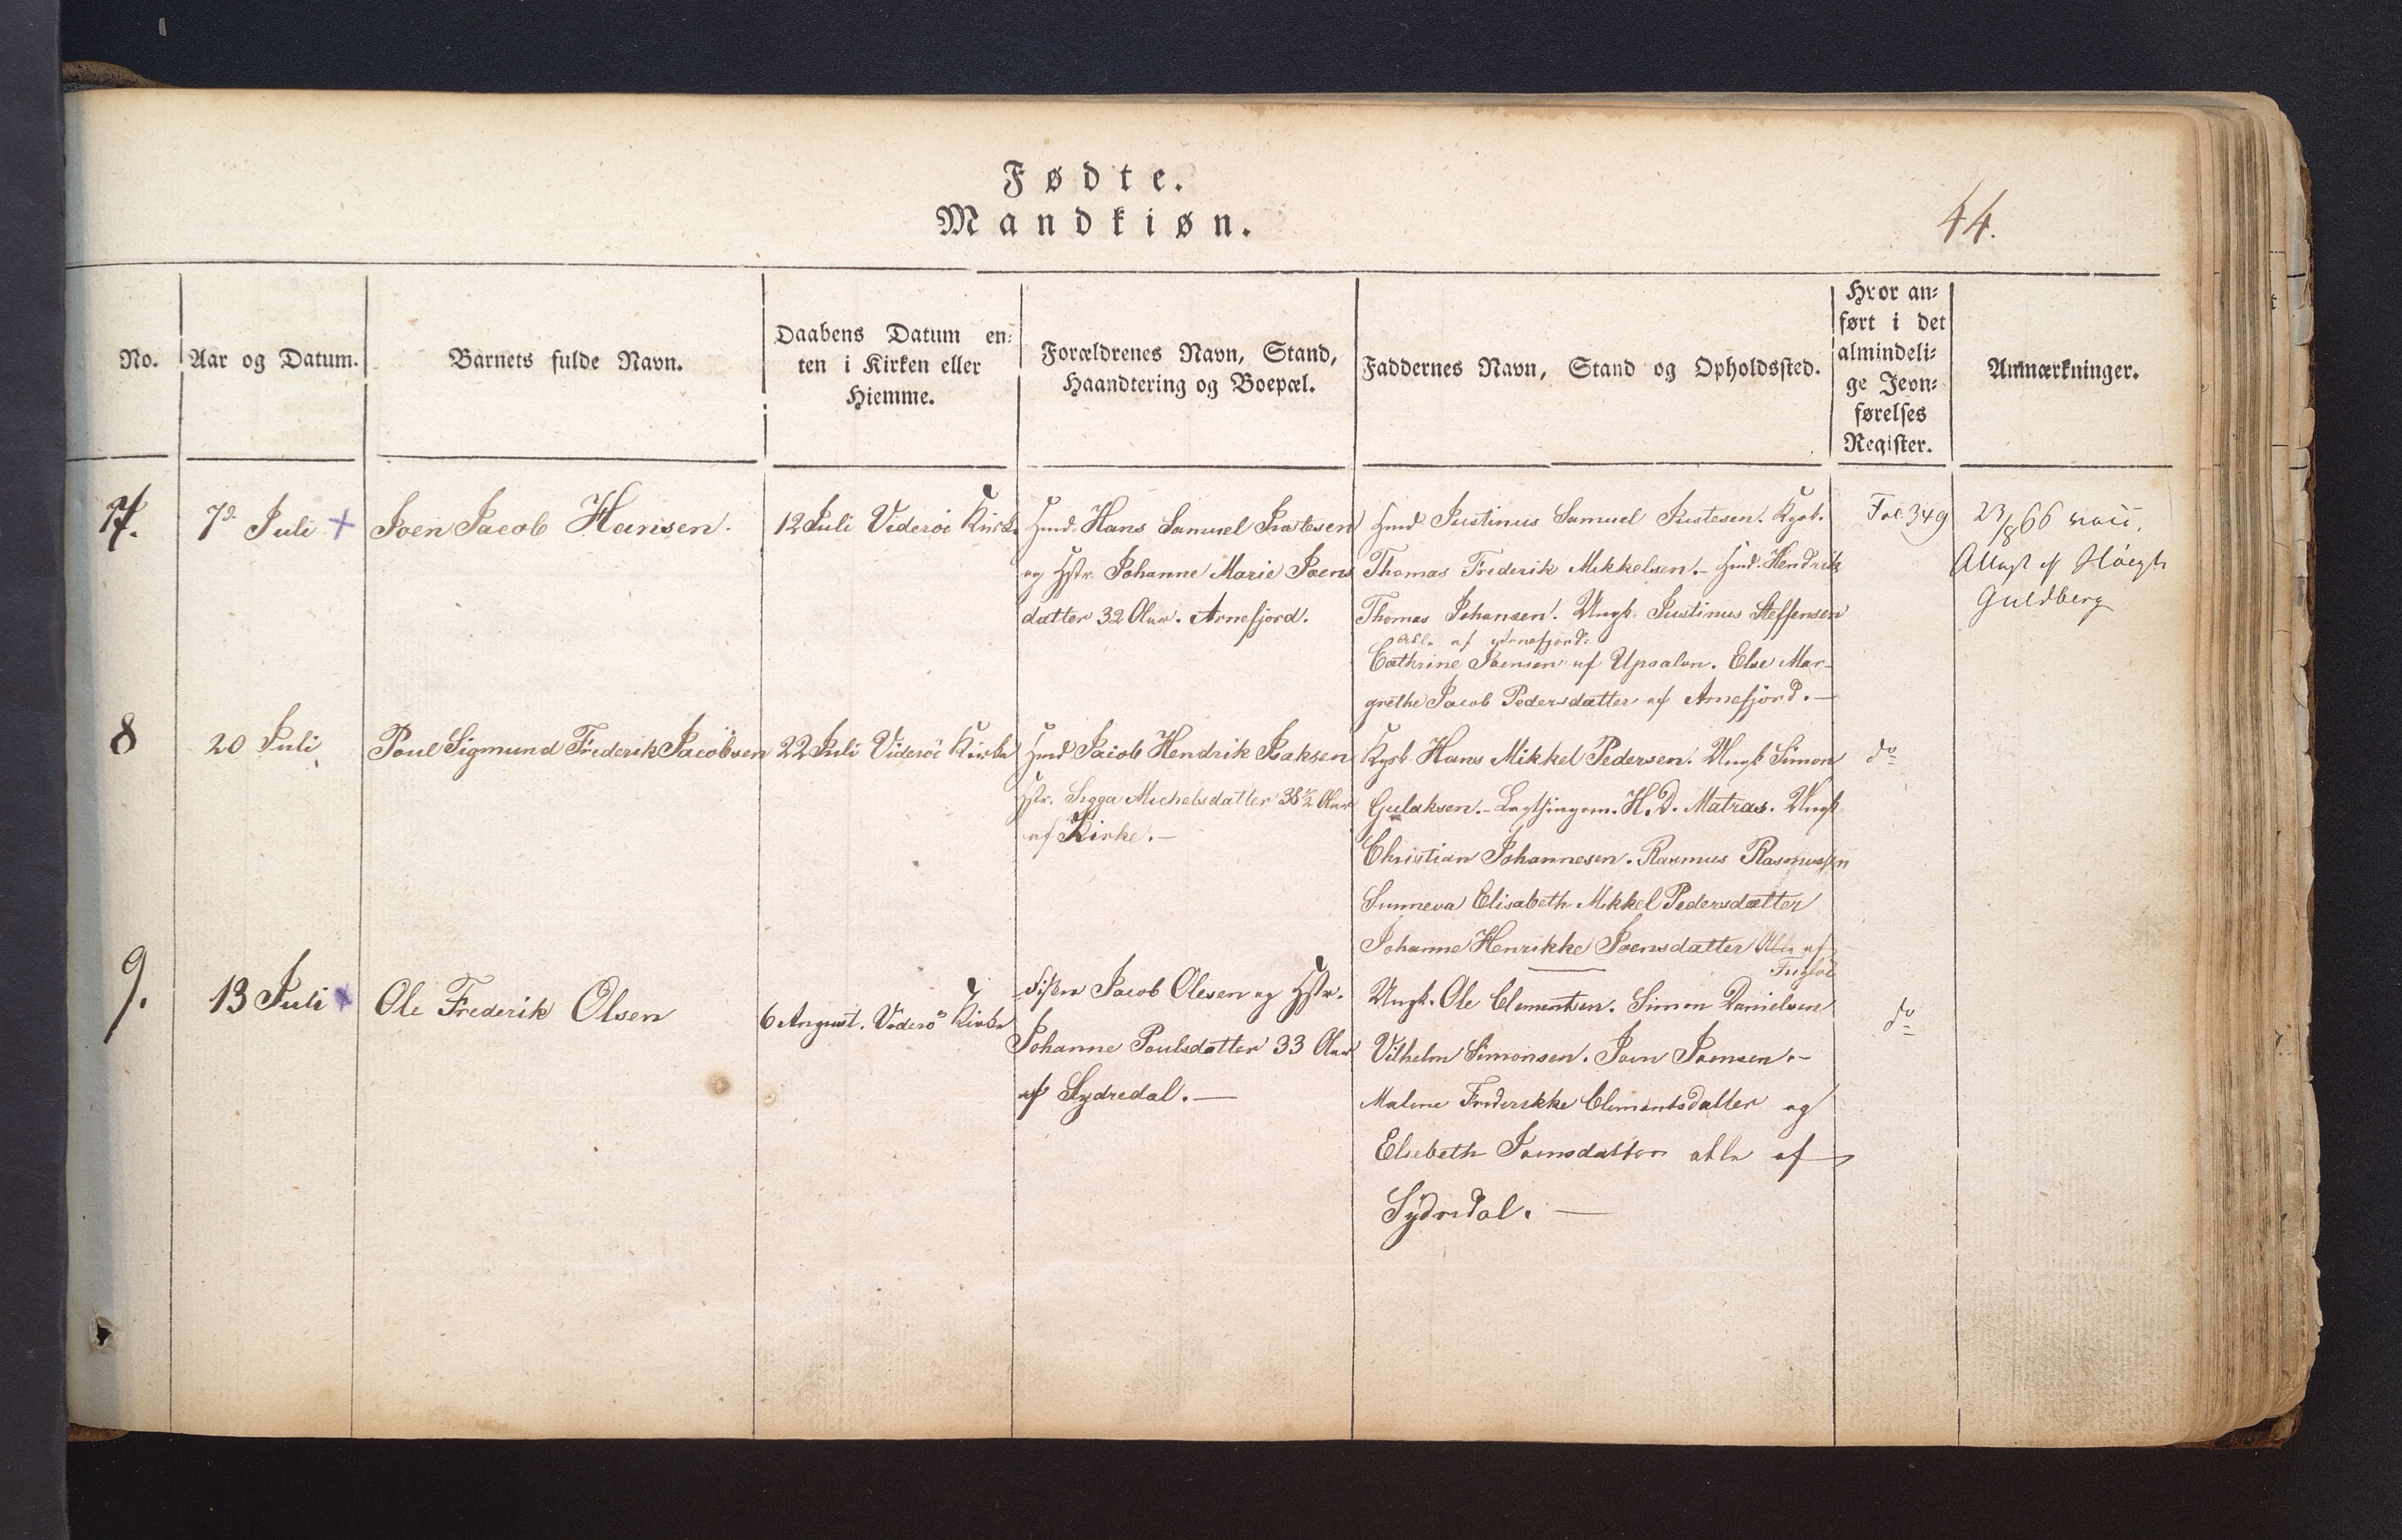 Fødte.
Mandkiøn.
44.
No.
Aar og Datum.
Barnets fulde Navn.
Daabens Datum en-
ten i Kirken eller
Hiemme.
Forældrenes Navn, Stand,
Haandtering og Boepæl.
Faddernes Navn, Stand og Opholdssted.
Hvor an-
ført i det
almindeli-
ge Jevn-
førelses
Register.
Anmærkninger.
7.
7d. Juli +
Joen Jacob Hansen.
12 Juli Viderøi Kirke
Hmd. Hans Samuel Justesen
og Hstr. Johanne Marie Joens
datter 32 Aar. Arnefjord.
Hmd. Justinus Samuel Justesen. Kgsb.
Thomas Frederik Mikkelsen. – Hmd. Hendrik
Thomas Johansen. Ungk. Justinus Steffensen
Alle af Arnefjord:
Cathrine Joensen af Upsalen. Else Mar-
grethe Jacob Pedersdatter af Arnefjord. –
Fol. 349
23/8 66 vacc.
Attest af
Guldberg
8
20 Juli
Poul Sigmund Frederik Jacobsen
22 Juli Viderøi Kirke
Hmd Jacob Hendrik Isaksen
Hstr. Sigga Michelsdatter 38½ Aar
af Kirke. –
Kgsb. Hans Mikkel Pedersen. Ungk Simon
Gulaksen. – Lagthingsm. H. D. Matras. Ungk
Christian Johannesen. Rasmus Rasmussen
Sunneva Elisabeth Mikkel Pedersdatter
Johanne Henrikke Joensdatter Alle af
Fuglø
do
9.
13 Juli +
Ole Frederik Olsen
6 August. Viderö Kirke
Jacob Olesen og Hstr.
Johanne Poulsdatter 33 Aar
af Sydredal. –
Ungk. Ole Clementsen. Simon Danielsen
Vilhelm Simonsen. Joen Joensen. –
Malene Frederikke Clementsdatter og
Elsebeth Joensdatter alle af
Sydredal. –
do